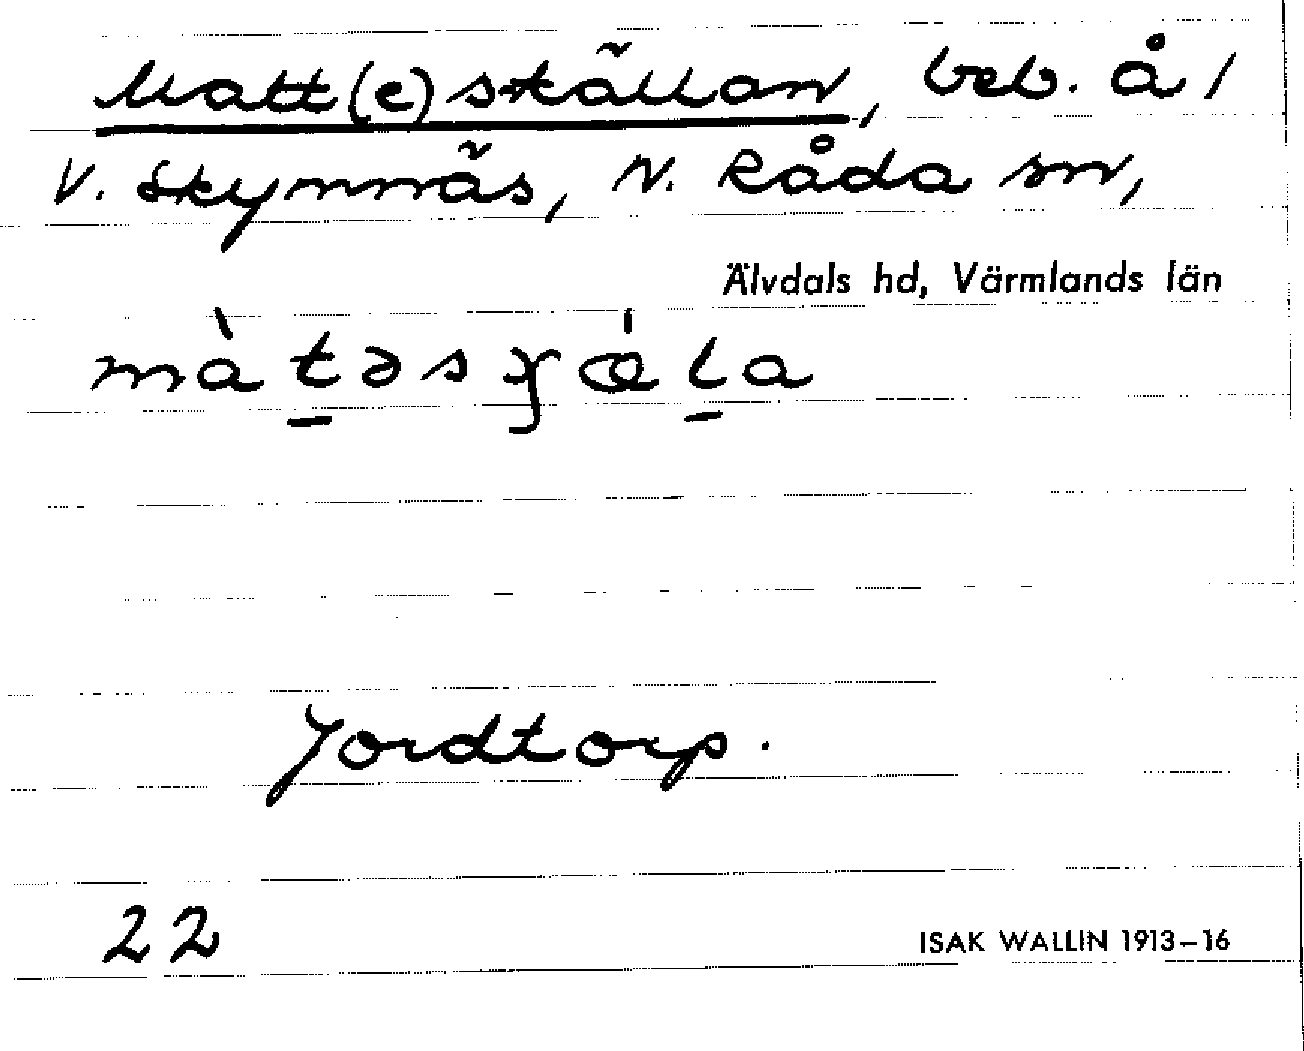 Matt(e)skällan, beb. å /
V. Skymnäs, N. Råda sn,
Älvdals hd, Värmlands län
Jordtorp.
22
ISAK WALLIN 1913–16